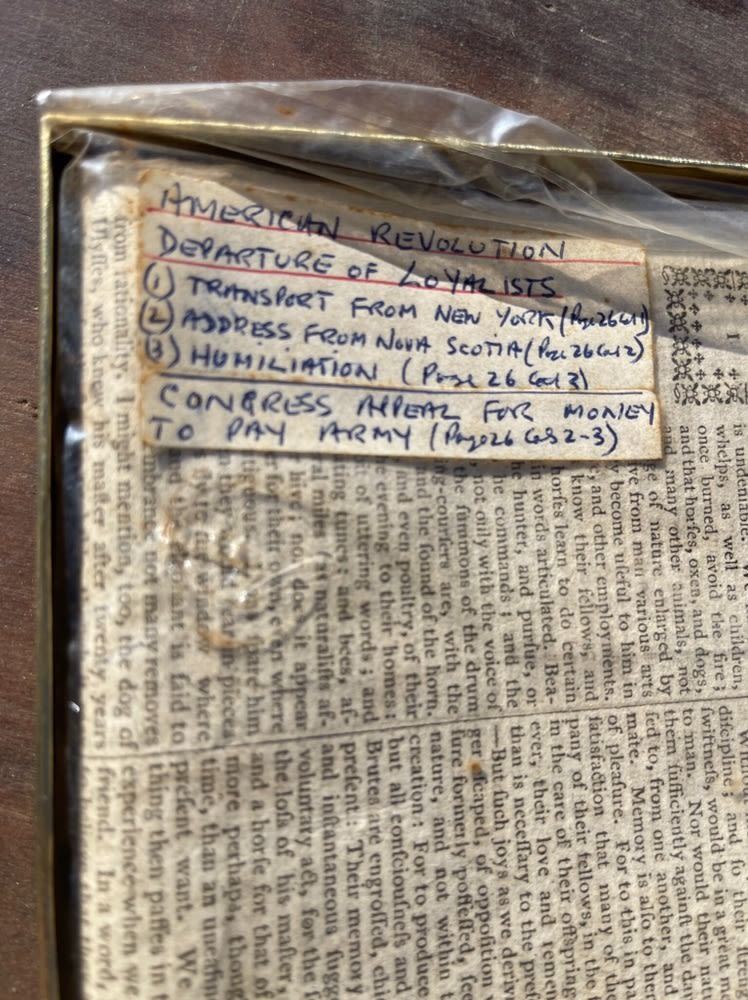 AMERICAN REVOLUTION
DEPARTURE OF LOYALISTS
① TRANSPORT FROM NEW YORK (Page 26 Col 1)
② ADDRESS FROM NOVA SCOTIA (Page 26 Col 2)
③ HUMILIATION (Page 26 Col 3)
CONGRESS APPEAL FOR MONEY
TO PAY ARMY (Page 26 Cols 2-3)
I
is undeniable.
whelps, as well as children,
once burned, avoid the fire;
and that horſes, oxen, and dogs,
and many other animals, not
of nature enlarged by
from man various arts
become uſeful to him in
and other employments.
know their fellows, and
horſes learn to do certain
in words articulated. Bea-
the hunter, and purſue, or
commands; and the
not only with the voice of
the ſummons of the drum
are, with the
even poultry, of their
the ſound of the horn.
evening to their homes:
of uttering words; and
tunes; and bees, af-
naturaliſts af-
hive, not do it appear
for their own, even where
where
is ſaid to
not many removes
from rationality. I might mention, too, the dog of
Ulyſſes, who knew his maſter after twenty years
With
diſcipline; and ſo their
ſwiftneſs, would be in a great
to man. Nor would their
them ſufficiently againſt the
fed to, from one another, and
mate. Memory is alſo to
of pleaſure. For to this in
ſatisfaction that many of
pany of their fellows, in the
in the care of their offspring
ever, their love and
than is neceſſary to the
—But ſuch joys as we
ger eſcaped, of oppoſition
ſure formerly poſſeſſed,
nature, and not within
creation: For to produce
but all conſciouſneſs and
Brutes are engroſſed,
preſent: Their memory
and inſtantaneous
voluntary act, for the
the loſs of his maſter,
and a horſe for that of
more perhaps,
time, than an
preſent want. We
thing then paſſes in
experience when we
friend. In a word,